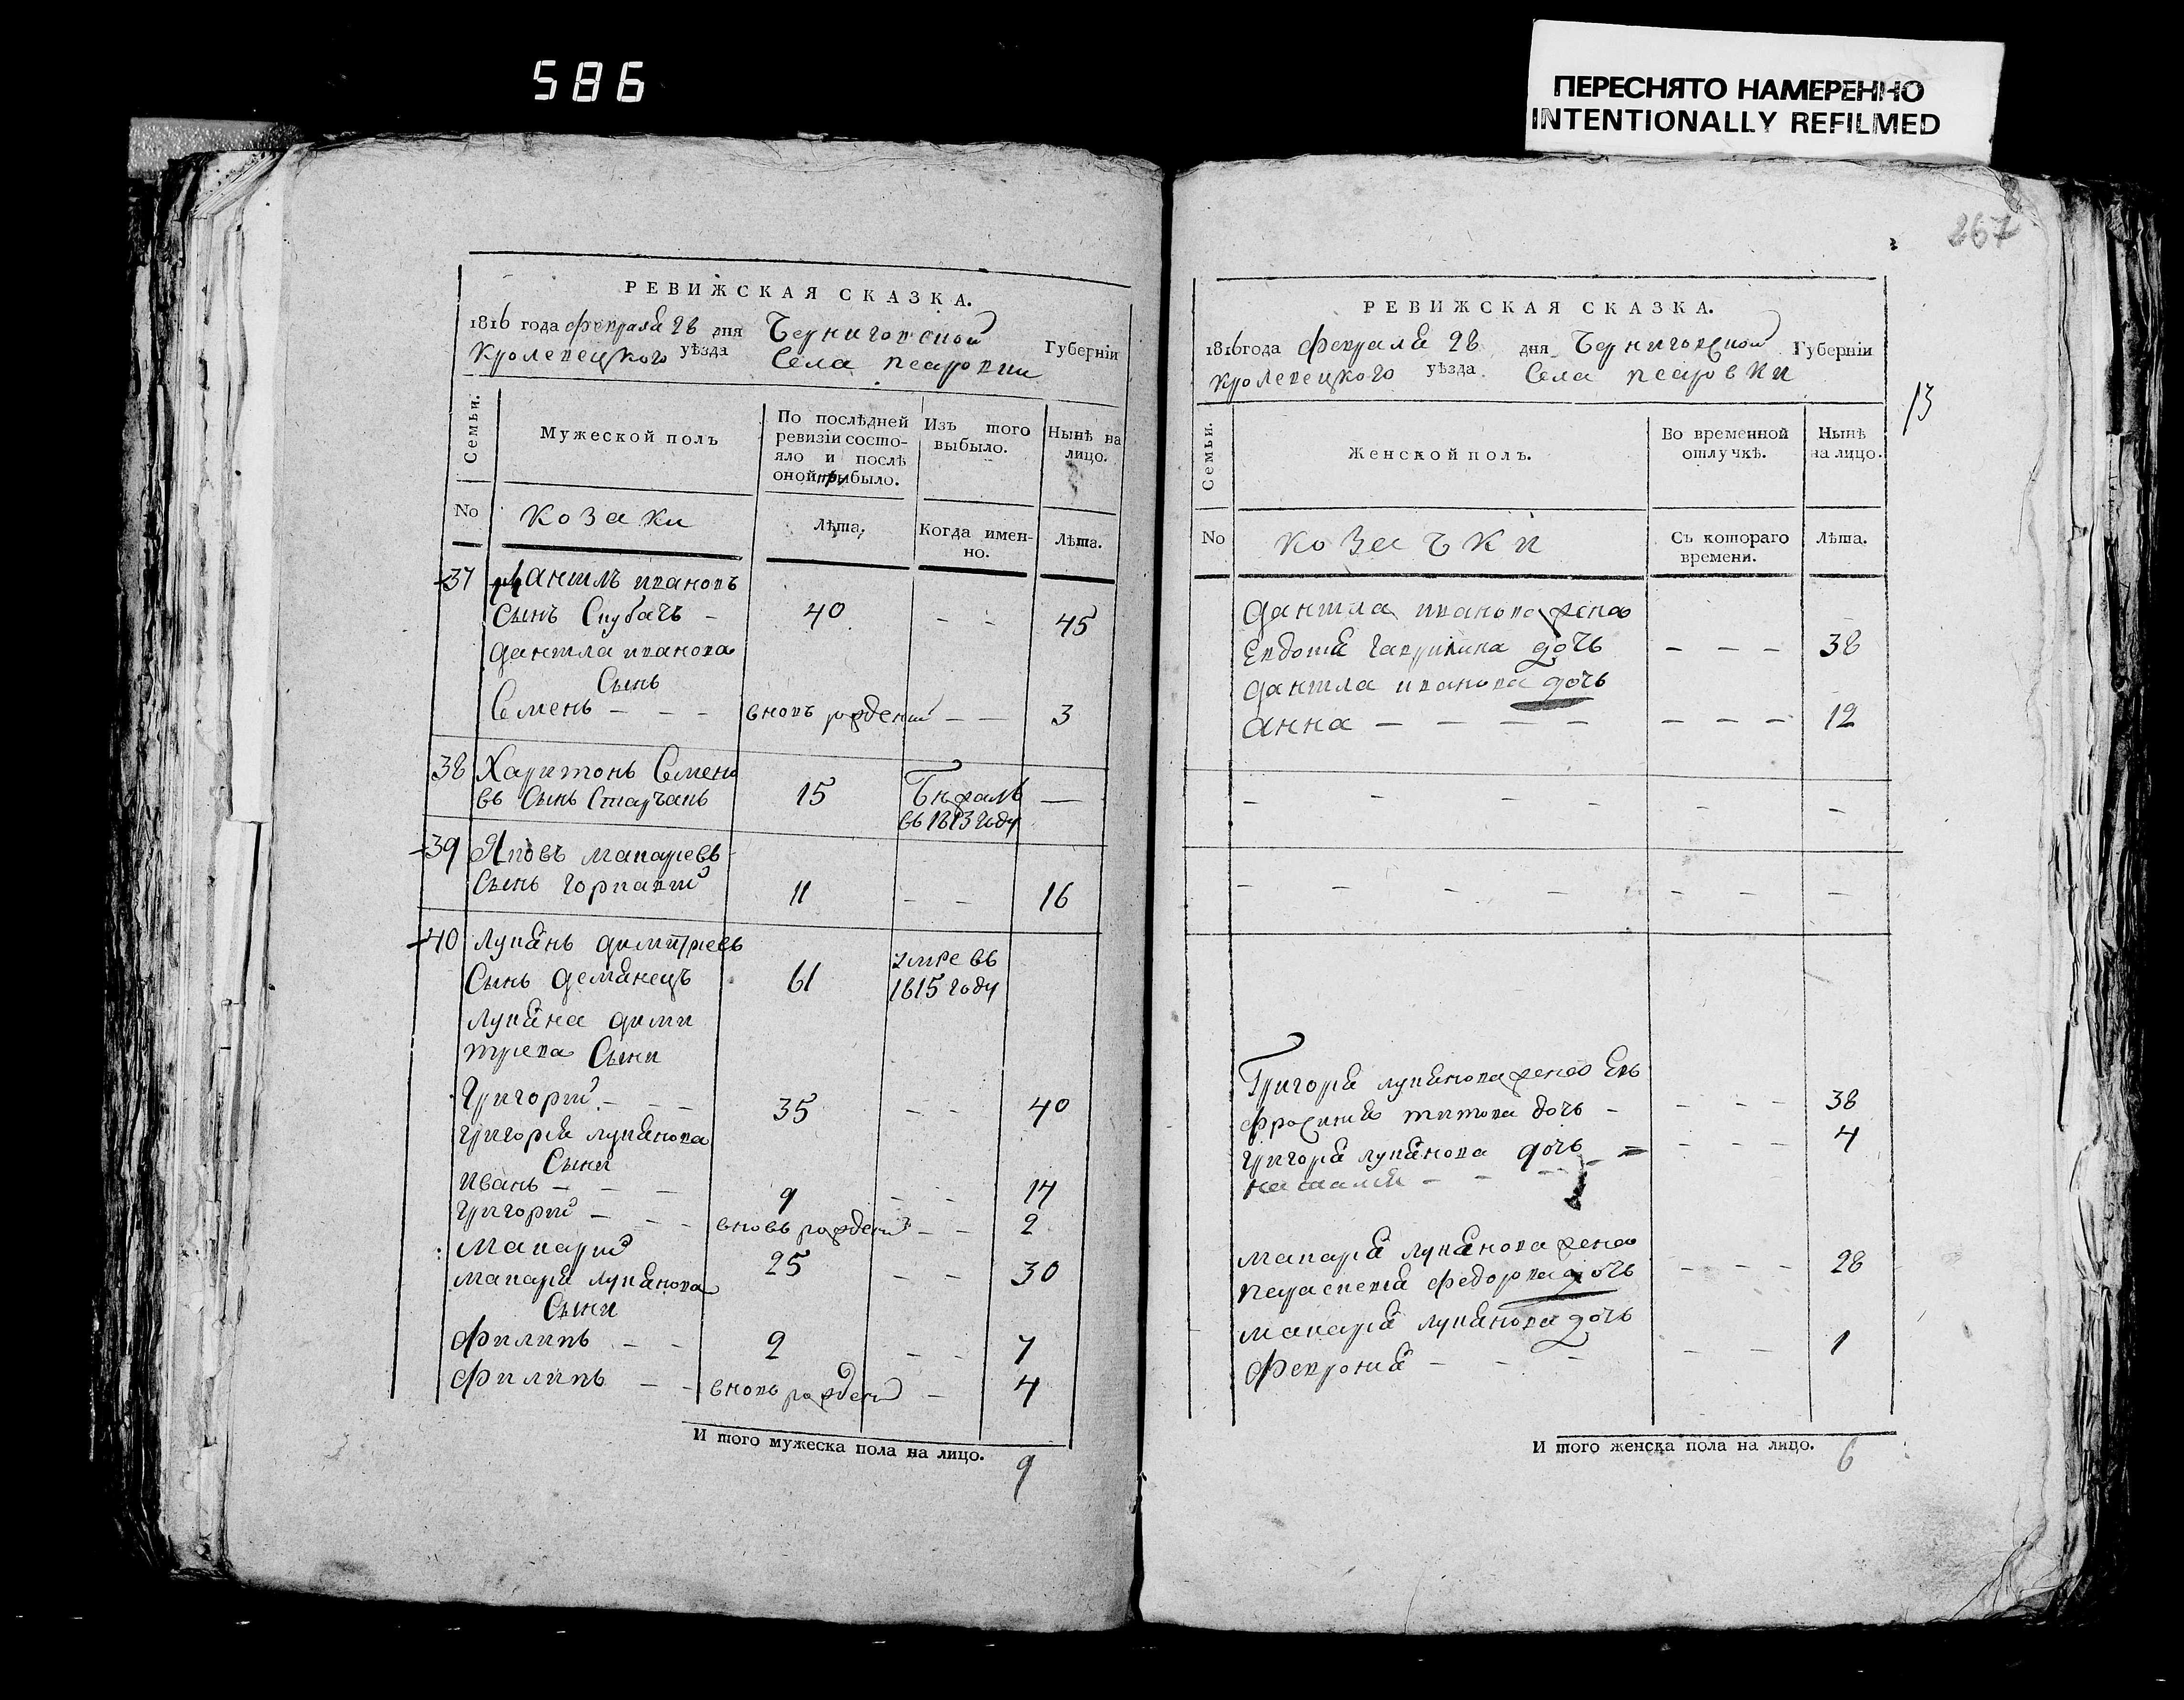 586
ПЕРЕСНЯТО НАМЕРЕННО
INTENTIONALLY REFILMED
267
13
РЕВИЖСКАЯ СКАЗКА.
1816 года февраля 28 дня Черниговской Губерніи
Кролевецкого уѣзда Села Псаровки
Семьи.
Мужеской полъ
По послѣдней ревизіи состояло и послѣ оной прибыло.
Изъ того выбыло.
Нынѣ на лицо.
No
козаки
Лѣта.
Когда именно.
Лѣта.
37 Даніилъ ивановъ
сынъ 40 - - 45
Даніила иванова
Сынъ
Семенъ - - - вновь рожденій - - 3
38 Харитонъ Семено
въ Сынъ Старчакъ 15 Бѣжалъ —
въ 1813 году
39 Яковъ макаревъ
Сынъ 11 - - 16
40 лукянъ димитріевъ
Сынъ Демянецъ 61 умре въ
1815 году
лукяна дими
тріева Сыни
Григорій - - - 35 - - 40
григорія лукянова
Сыни
иванъ - - - 9 - - 14
григорій - - - вновь рожденій - - 2
макарій 25 - - 30
макарія лукянова
Сыни
филипъ - - 2 - - 7
филипъ - - вновь рожденій - 4
И того мужеска пола на лицо. 9
РЕВИЖСКАЯ СКАЗКА.
1816 года февраля 28 дня Черниговской Губерніи
Кролевецкого уѣзда Села псаровки
Семьи.
Женской полъ.
Во временной отлучкѣ.
Нынѣ на лицо.
No
козачки
Съ котораго времени.
Лѣта.
Даніила иванова жена
Евдокія гаврилина дочь - - - 38
Даніила иванова дочь
анна - - - - - - - 12
- - - - - -
- - - - - - -
Григорія лукянова жена Ев
фросинія титова дочь - - - - 38
григорія лукянова дочь - - - 4
наталія - - -
макарія лукянова жена
параскевія федорова дочь - - - 28
макарія лукянова дочь
Февронія - - - - - 1
И того женска пола на лицо. 6